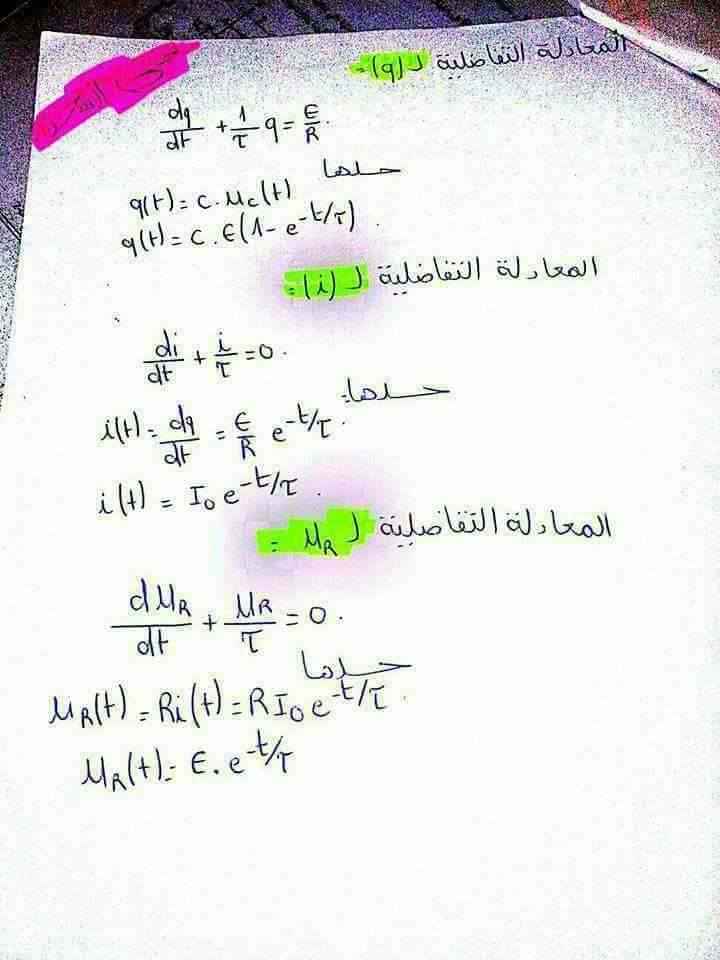 في الشحن
المعادلة التفاضلية لـ (q) =
dq/dt + 1/τ q = E/R.
حلها
q(t) = C.u_c(t)
q(t) = C.E(1 - e^-t/τ).
المعادلة التفاضلية لـ (i) =
di/dt + i/τ = 0.
حلها:
i(t) = dq/dt = E/R e^-t/τ.
i(t) = I₀ e^-t/τ.
المعادلة التفاضلية لـ u_R =
du_R/dt + u_R/τ = 0.
حلها
u_R(t) = Ri(t) = RI₀ e^-t/τ.
u_R(t) = E.e^-t/τ